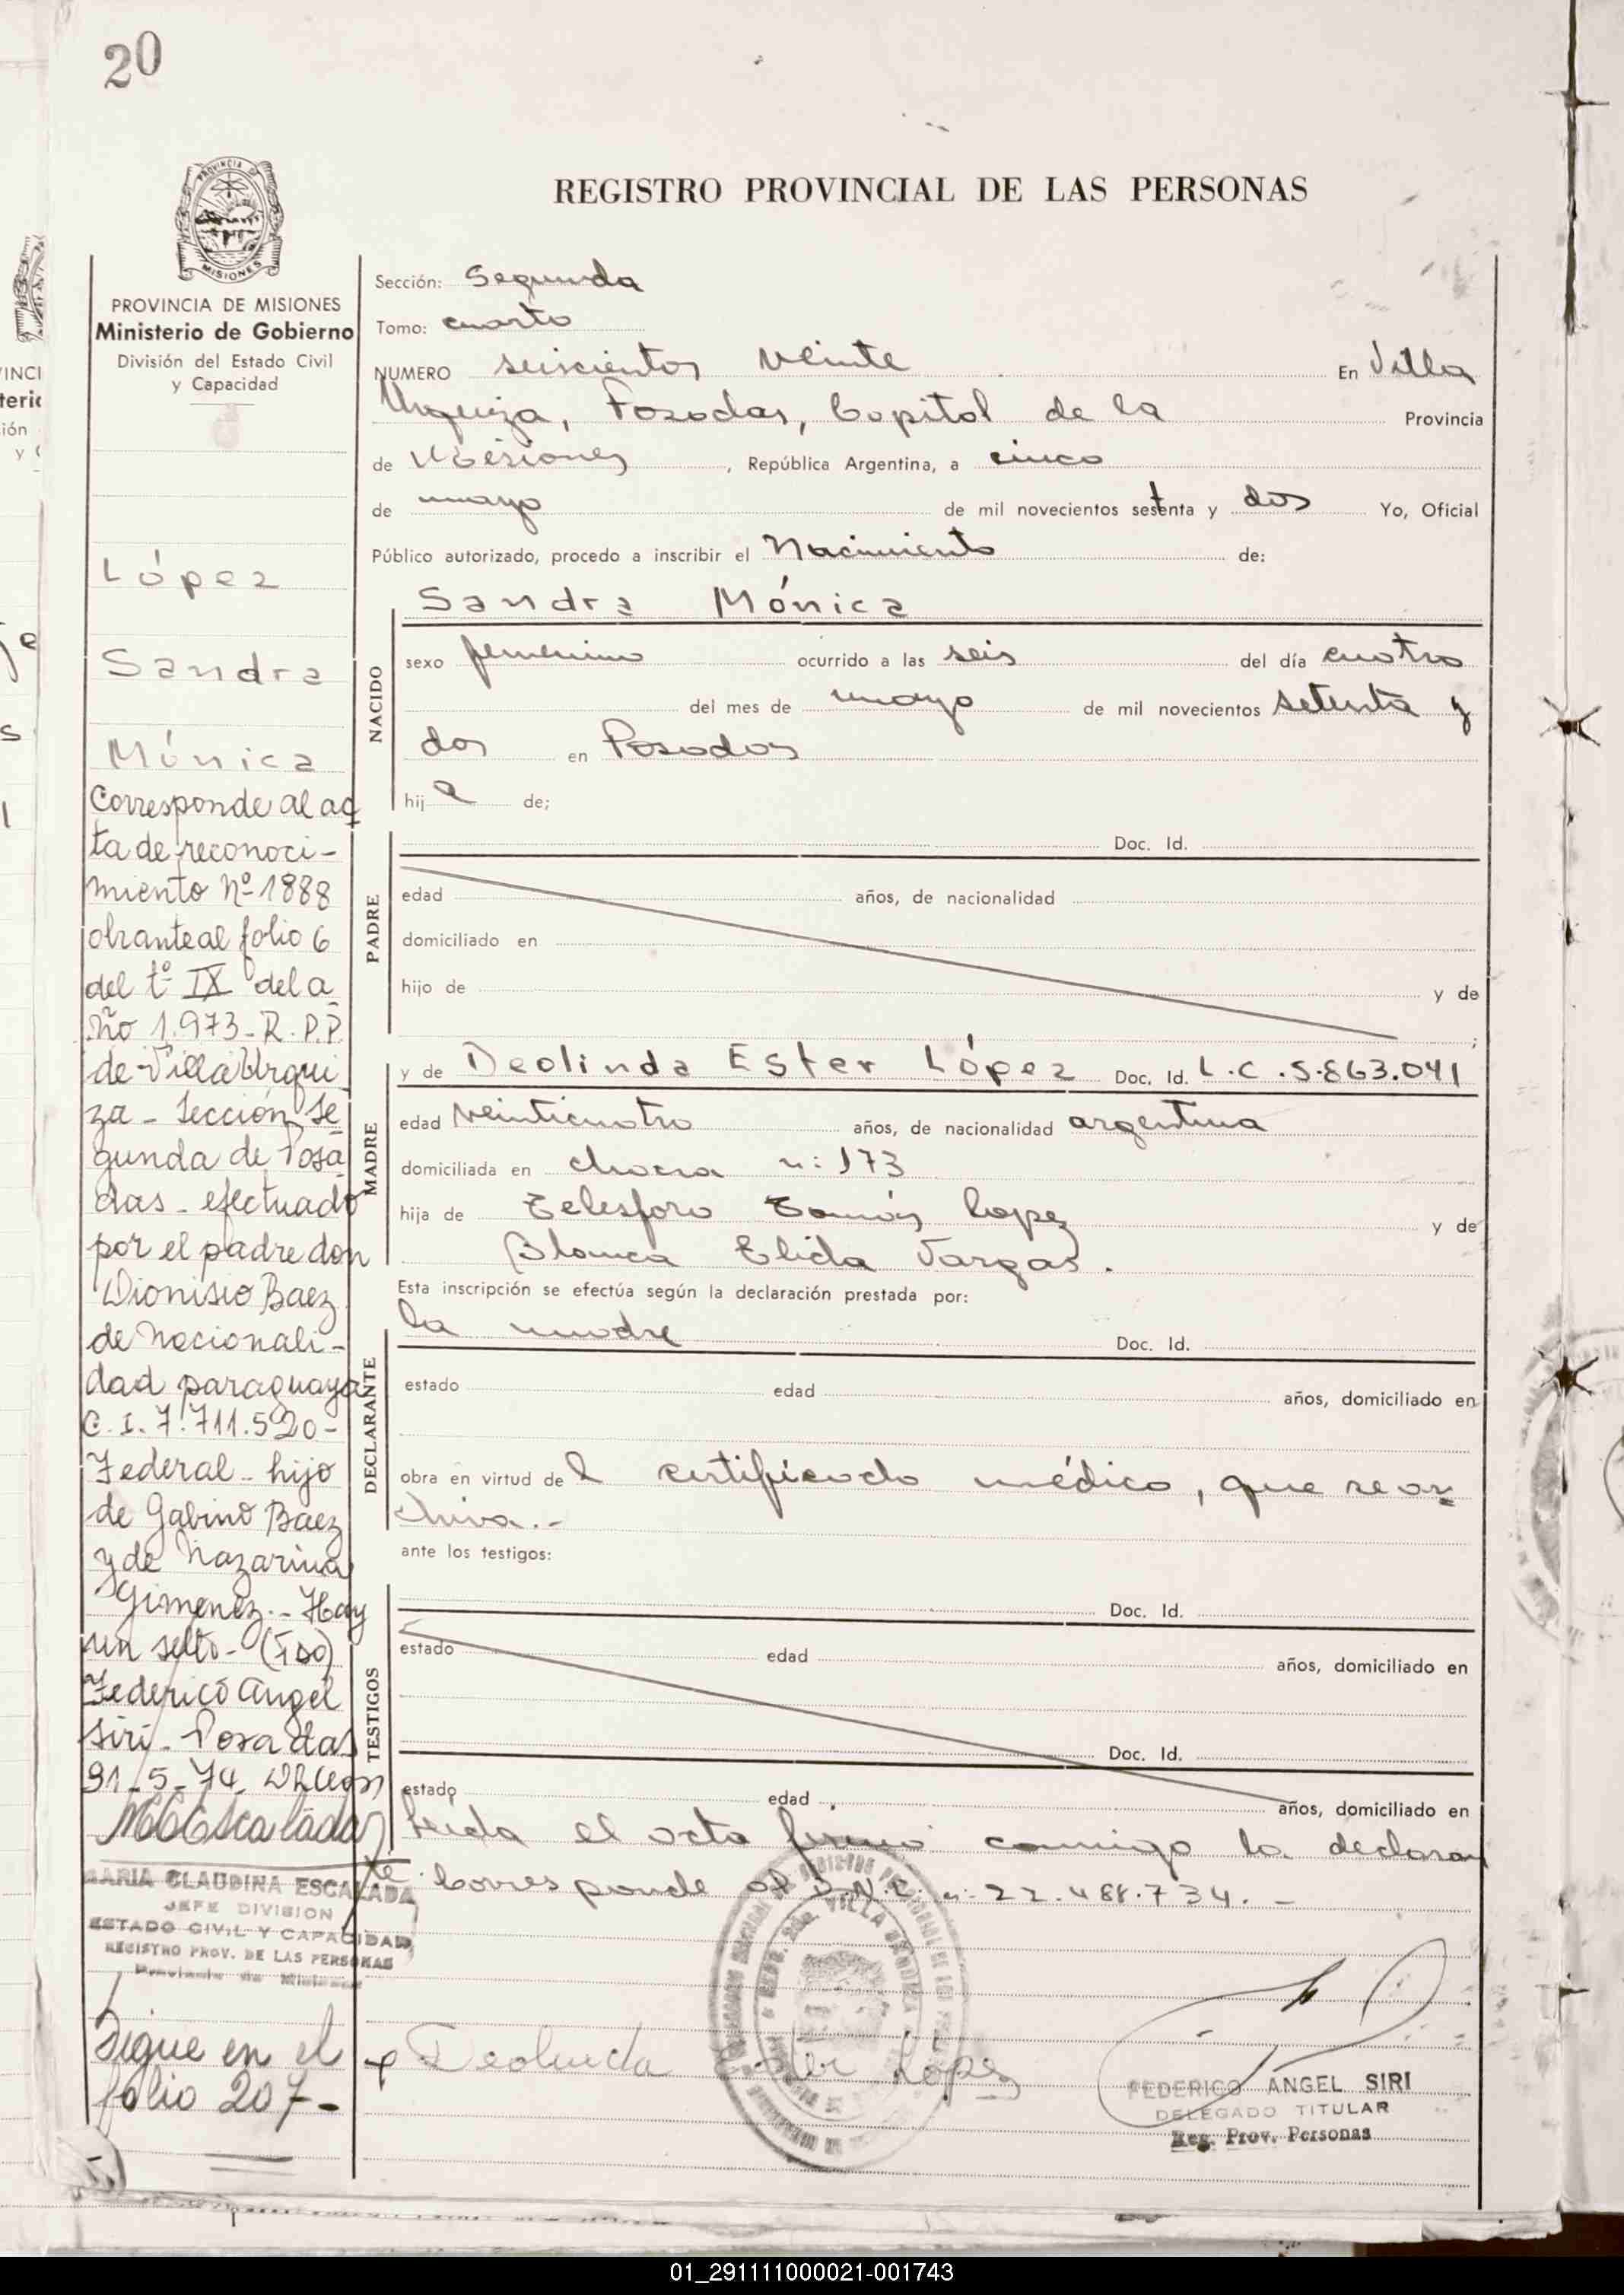 20
PROVINCIA DE MISIONES
REGISTRO PROVINCIAL DE LAS PERSONAS
PROVINCIA DE MISIONES
Ministerio de Gobierno
División del Estado Civil
y Capacidad
López
Sandra
Mónica
Corresponde al ac
ta de reconoci-
miento Nº 1888
obrante al folio 6
del tº IX del a
ño 1.973- R. P.P.
de Villa Urqui
za - Sección Se
gunda de Posa
das - efectuado
por el padre don
Dionisio Baez
de nacionali-
dad paraguaya
C. I. 7.711.520-
Federal - hijo
de Gabino Baez
y de Nazarina
Gimenez.- Hay
un sello- (Fdo)
Federico Angel
Siri - Posadas
31-5-74
MARIA CLAUDINA ESCALADA
JEFE DIVISION
ESTADO CIVIL Y CAPACIDAD
REGISTRO PROV. DE LAS PERSONAS
Provincia de Misiones
Sigue en el
folio 207-
Sección: Segunda
Tomo: cuarto
NUMERO seiscientos veinte En Villa
Urquiza, Posadas, Capital de la Provincia
de Misiones, República Argentina, a cinco
de mayo de mil novecientos setenta y dos Yo, Oficial
Público autorizado, procedo a inscribir el Nacimiento de:
Sandra Mónica
NACIDO
sexo femenino ocurrido a las seis del día cuatro
del mes de mayo de mil novecientos setenta y
dos en Posadas
hij a de;
PADRE
Doc. Id.
edad años, de nacionalidad
domiciliado en
hijo de y de
;
MADRE
y de Deolinda Ester López Doc. Id. L.C. 5.863.041
edad veinticuatro años, de nacionalidad argentina
domiciliada en chacra n: 173
hija de Telesforo Tomás Lopez y de
Blanca Elida Vargas.
Esta inscripción se efectúa según la declaración prestada por:
DECLARANTE
la madre Doc. Id.
estado edad años, domiciliado en
obra en virtud del certificado médico, que se ar
chiva.-
ante los testigos:
TESTIGOS
Doc. Id.
estado edad años, domiciliado en
Doc. Id.
estado edad años, domiciliado en
Leída el acta firma conmigo la declaran
te. Corresponde al D.N.I. n: 22.488.734.-
Deolinda Ester Lopez
FEDERICO ANGEL SIRI
DELEGADO TITULAR
Reg. Prov. Personas
01_291111000021-001743